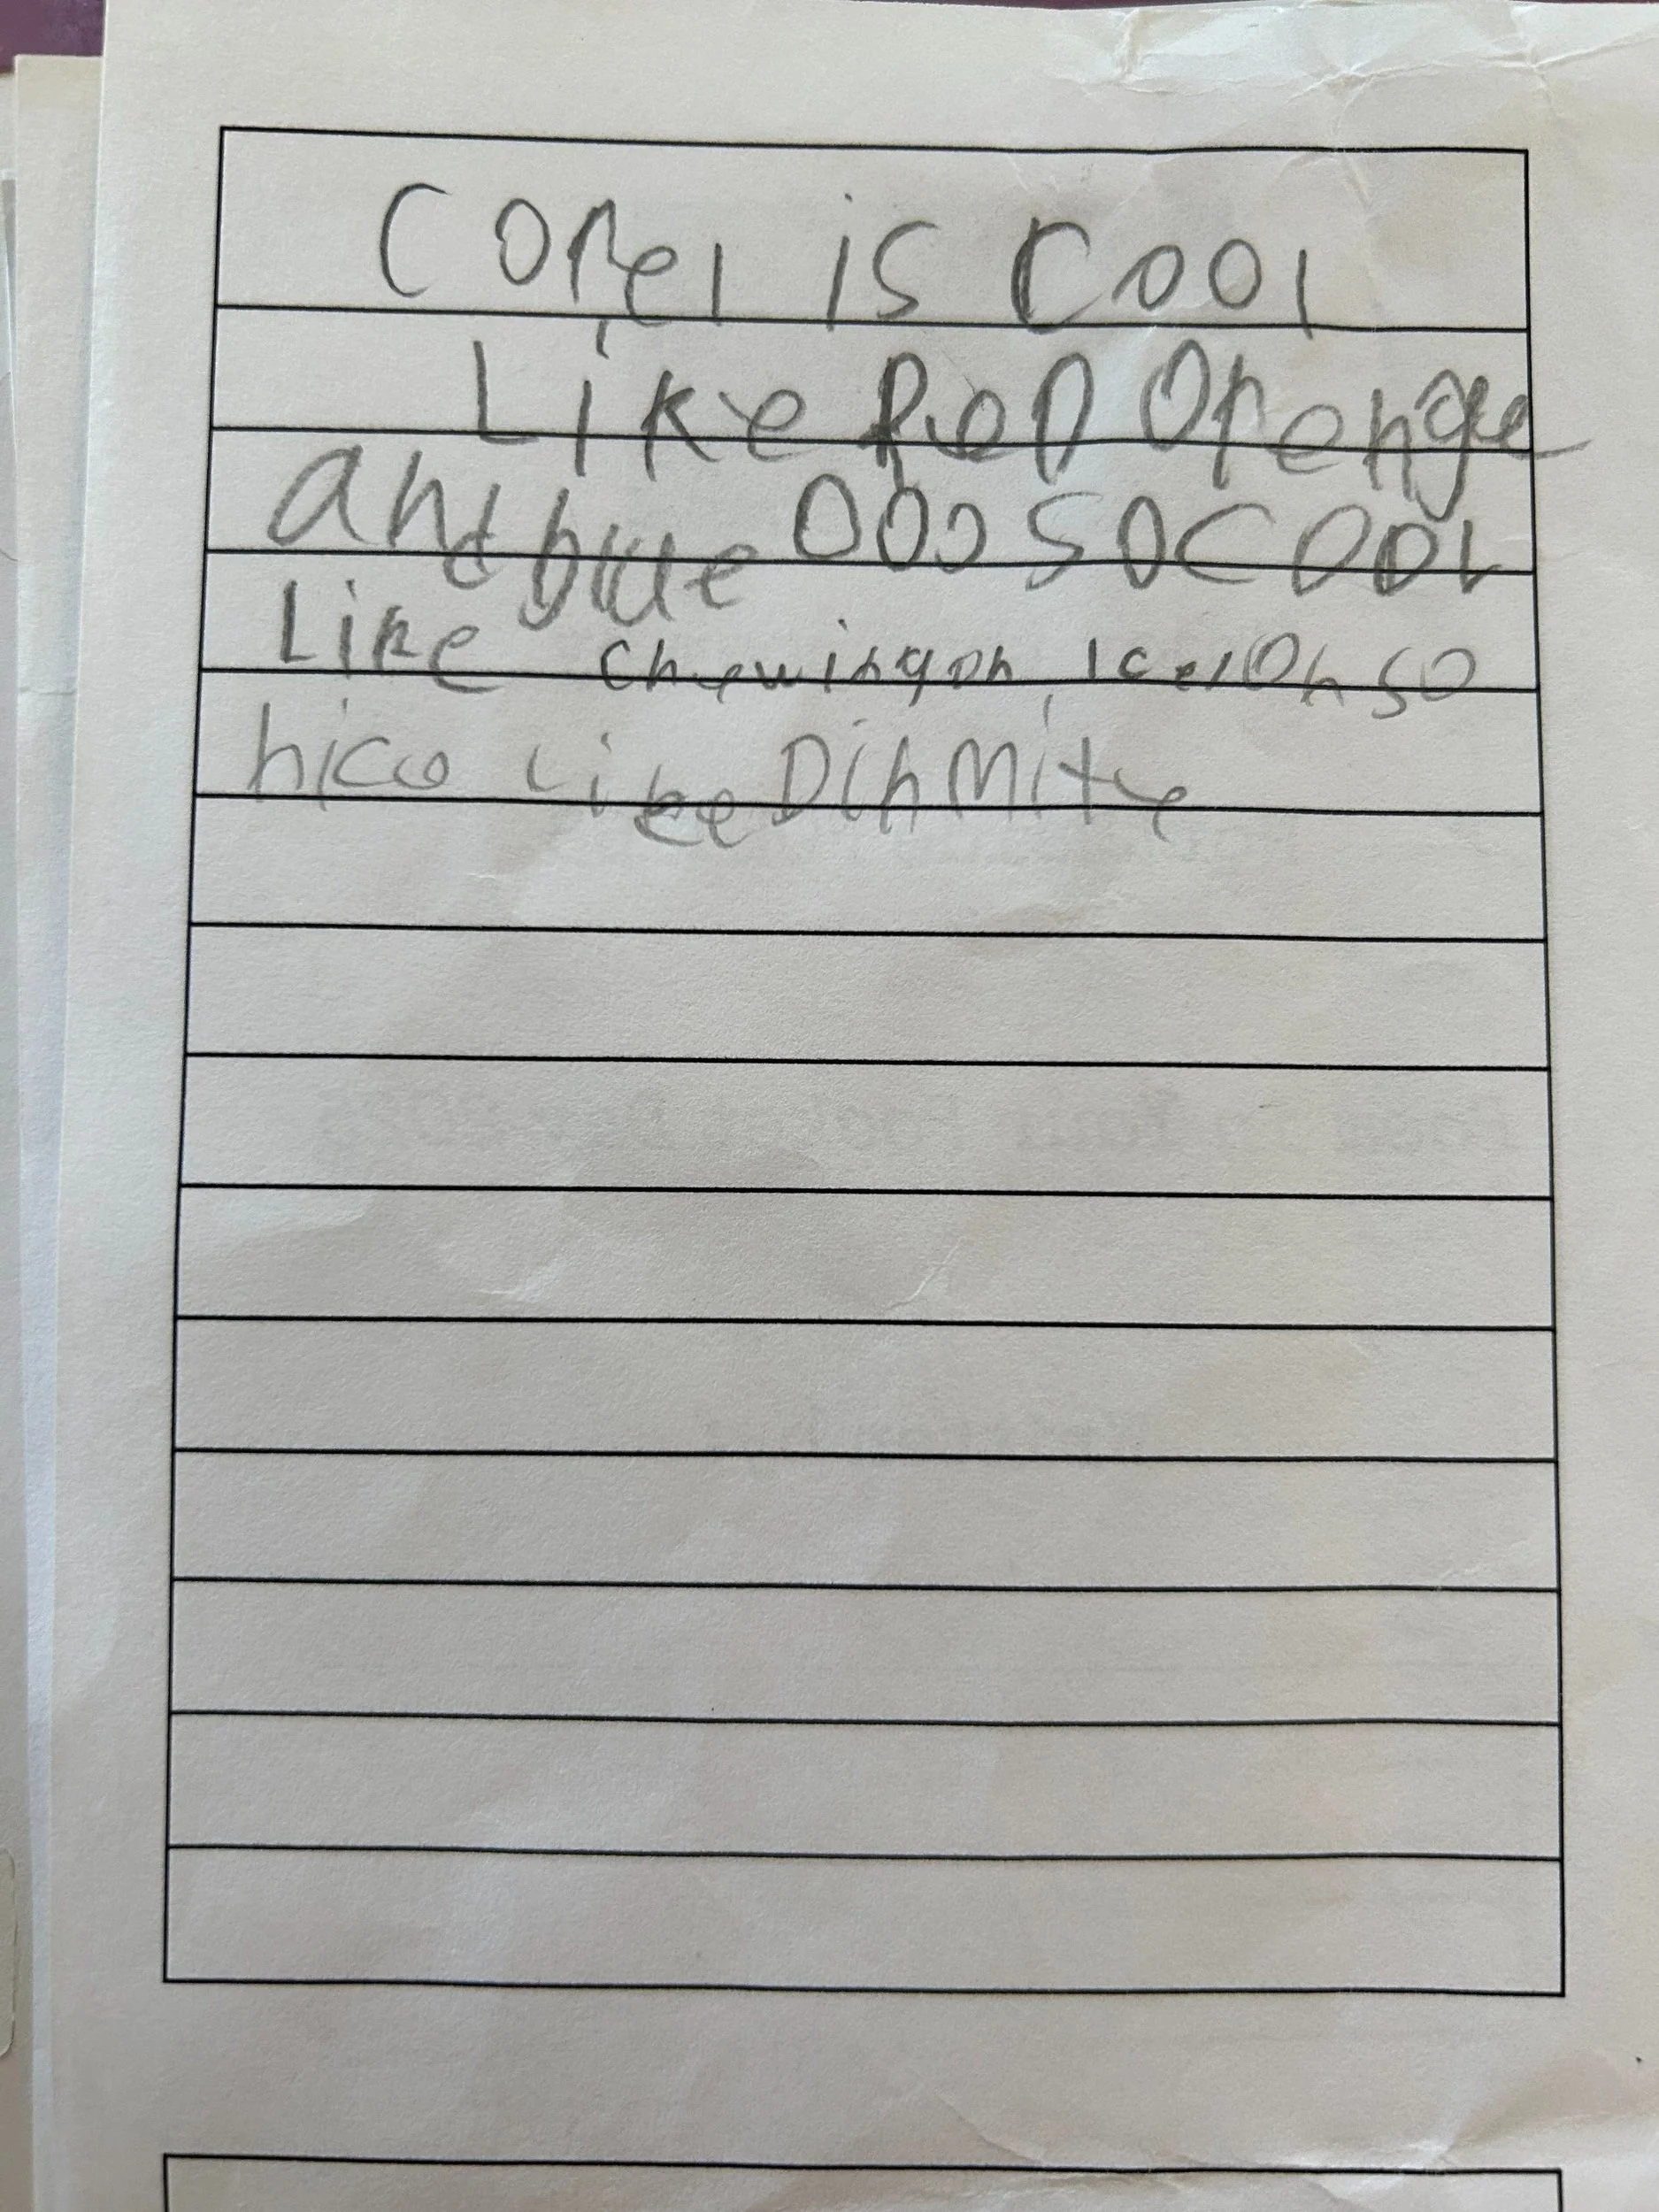 Corel is Cool
Like ReD Orenge
and blue OOO SO COOL
Like chewing on Ice! Oh so
nice Like Dinmite